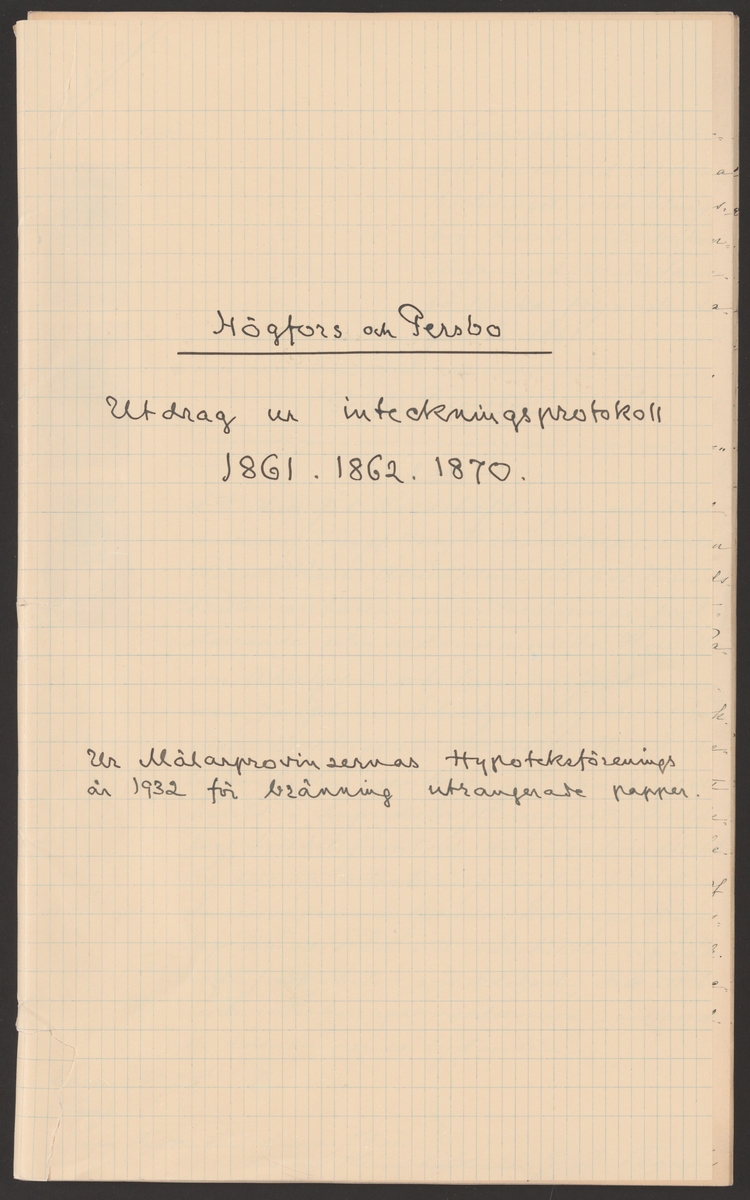 Högfors och Persbo
Utdrag ur inteckningsprotokoll
1861. 1862. 1870.
Ur Mälarprovinsernas Hypoteksförenings
år 1932 för bränning utrangerade papper.